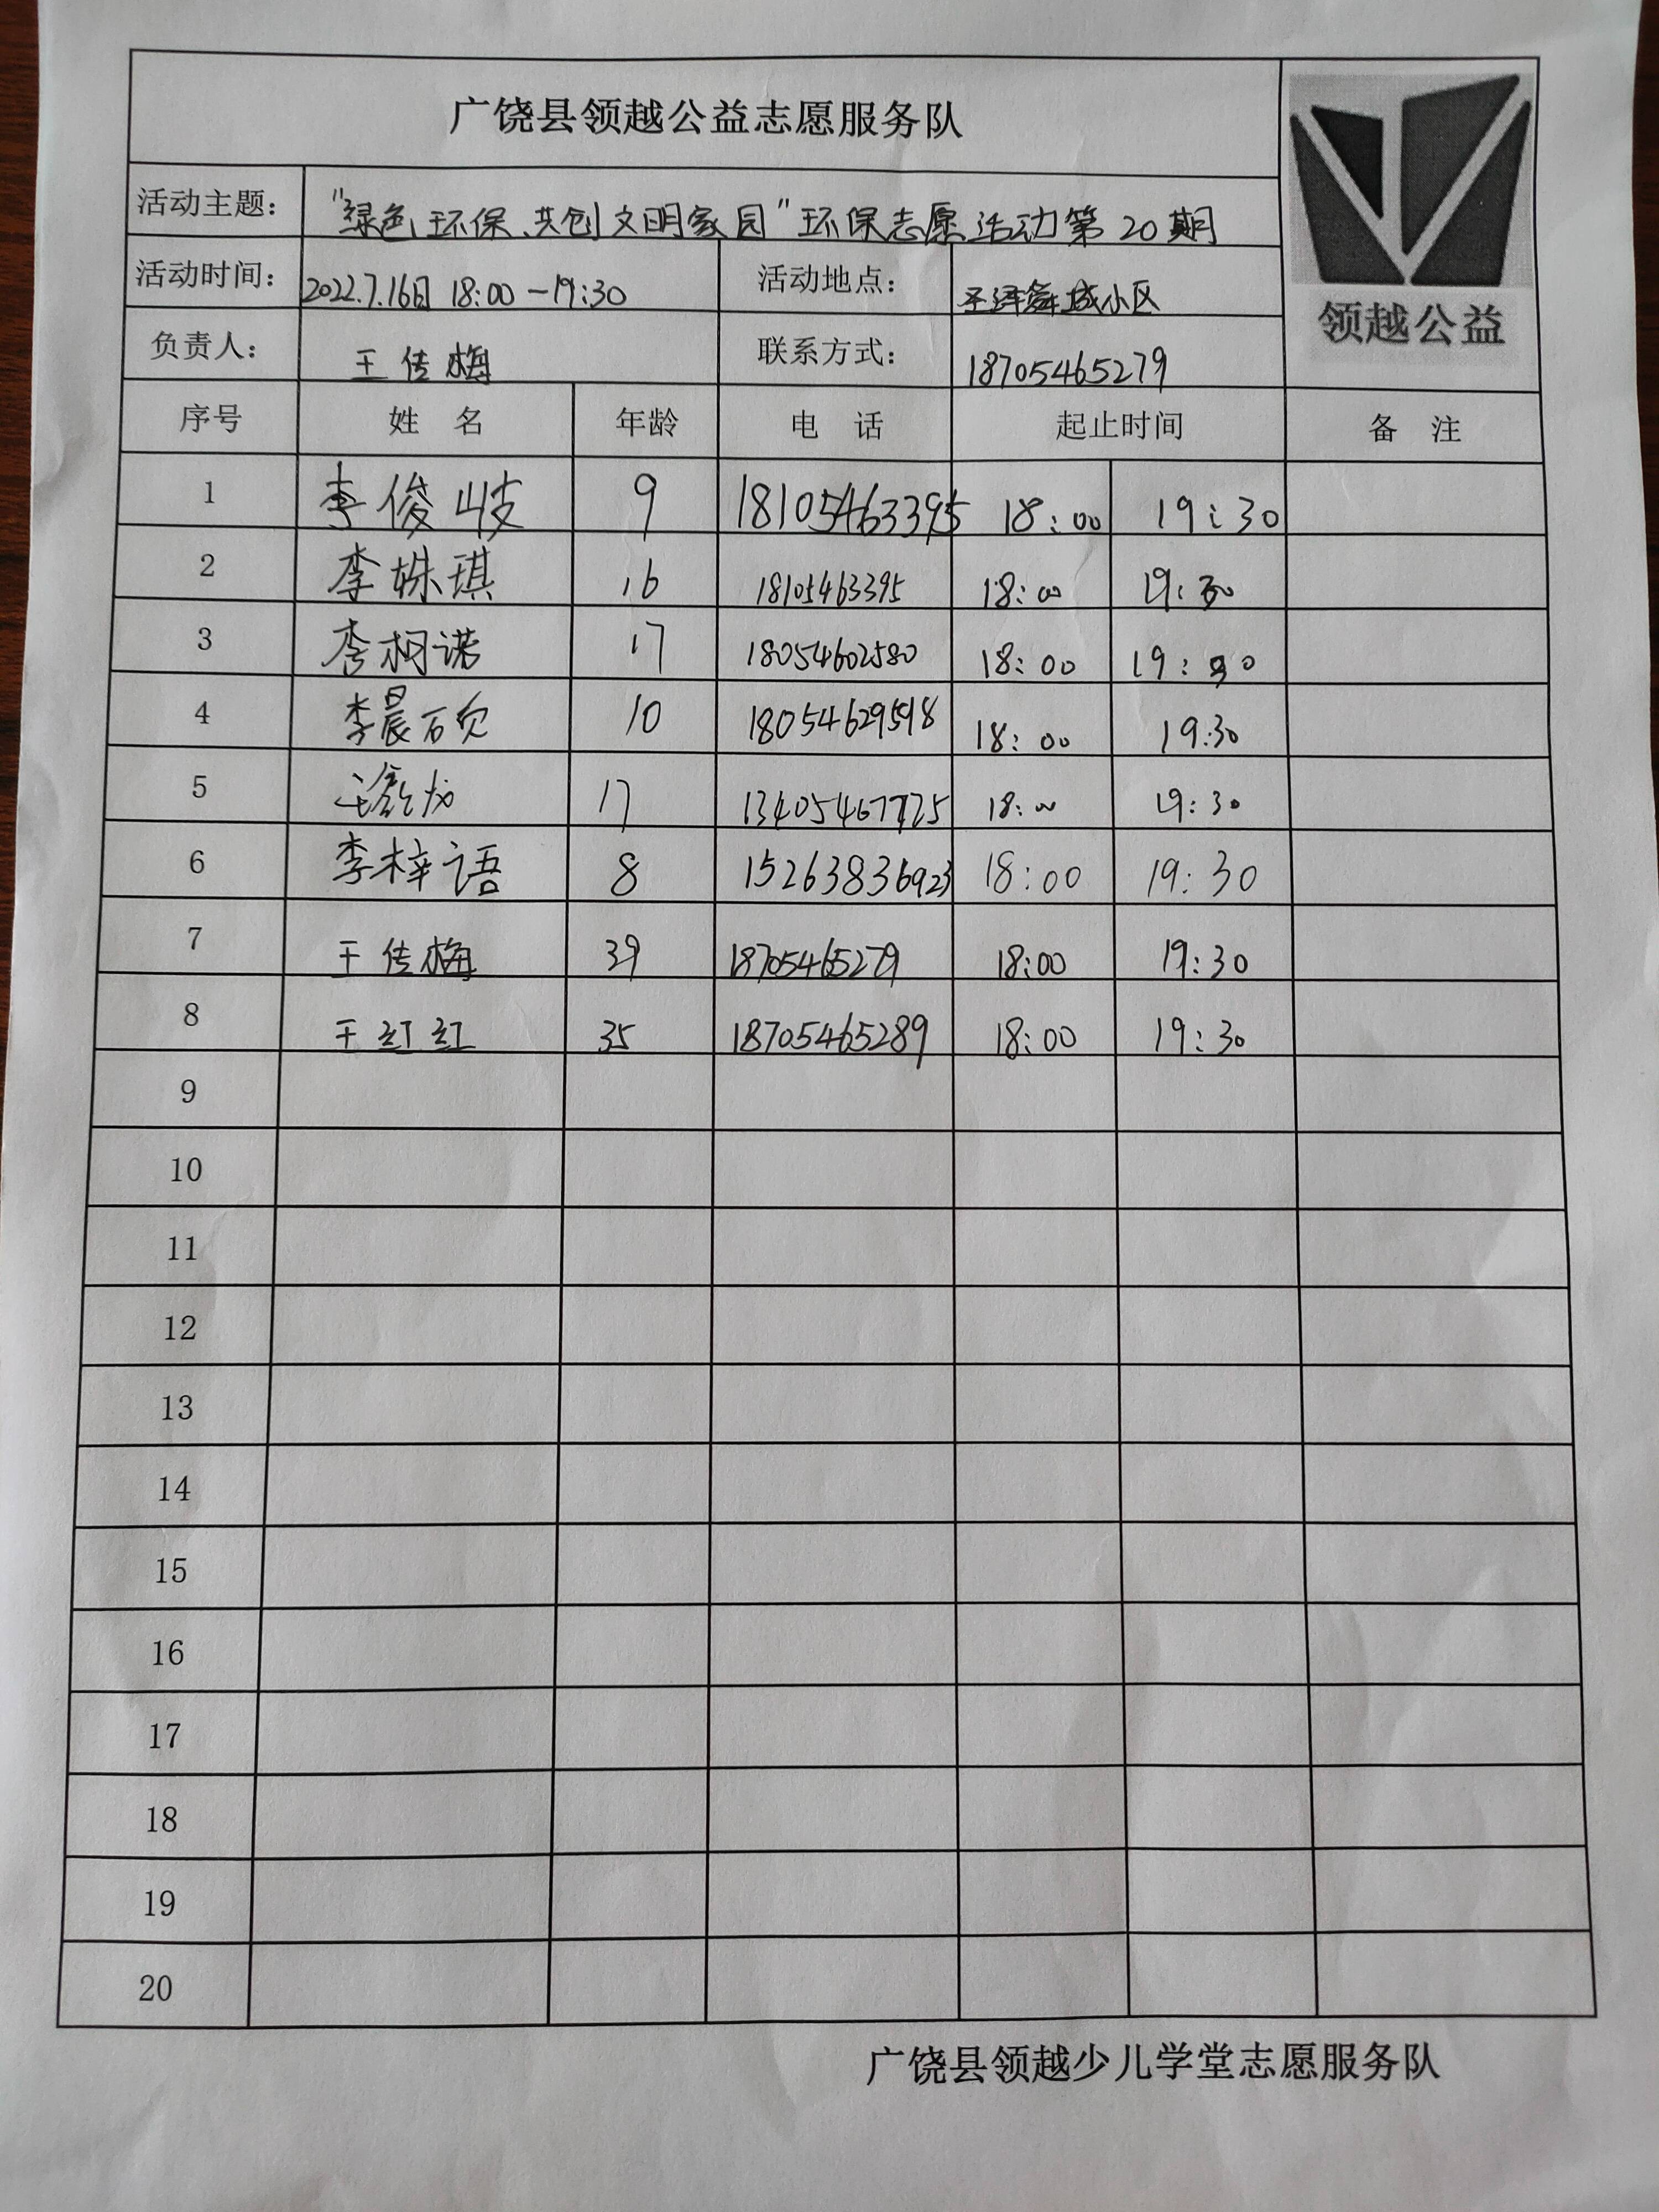 广饶县领越公益志愿服务队
领越公益
活动主题： "绿色环保、共创文明家园"环保志愿活动第20期
活动时间： 2022.7.16日 18:00-19:30 活动地点： 圣泽舜城小区
负责人： 王传梅 联系方式： 18705465279
序号 姓 名 年龄 电 话 起止时间 备 注
1 李俊岐 9 18105463395 18:00 19:30
2 李姝琪 16 18105463395 18:00 19:30
3 李柯诺 17 18054602580 18:00 19:30
4 李晨 10 18054629598 18:00 19:30
5 17 13405467725 18:00 19:30
6 李梓语 8 15263836923 18:00 19:30
7 王传梅 39 18705465279 18:00 19:30
8 王红红 35 18705465289 18:00 19:30
9
10
11
12
13
14
15
16
17
18
19
20
广饶县领越少儿学堂志愿服务队